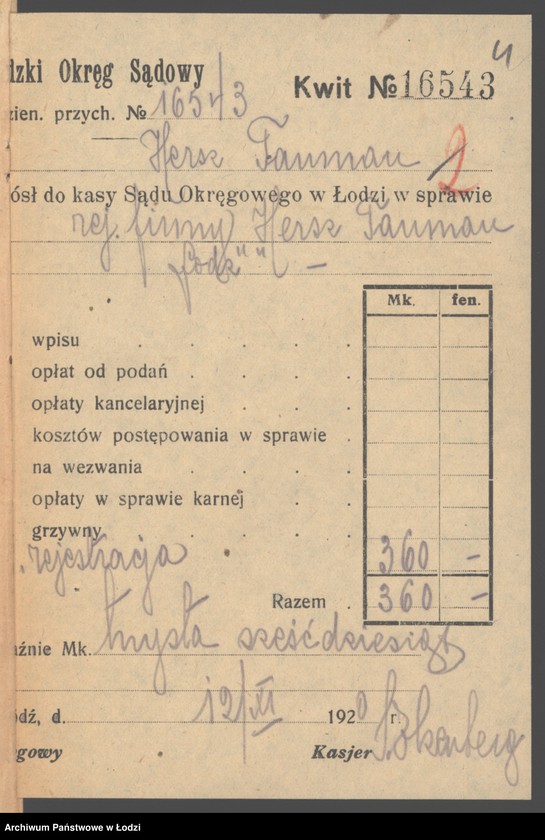 dzki Okręg Sądowy
4
Kwit № 16543
zien. przych. № 16543
Hersz Tauman
2
ósł do kasy Sądu Okręgowego w Łodzi w sprawie
rej. firmy "Hersz Tauman
Łódź" –
Mk. fen.
wpisu . . . .
opłat od podań . . . .
opłaty kancelaryjnej . . .
kosztów postępowania w sprawie .
na wezwania . . . .
opłaty w sprawie karnej . .
grzywny . . . .
rejestracja 360 –
Razem . 360 –
aźnie Mk. trzysta sześćdziesiąt
ódź, d. 12/XI 1920 r.
gowy Kasjer
Archiwum Państwowe w Łodzi